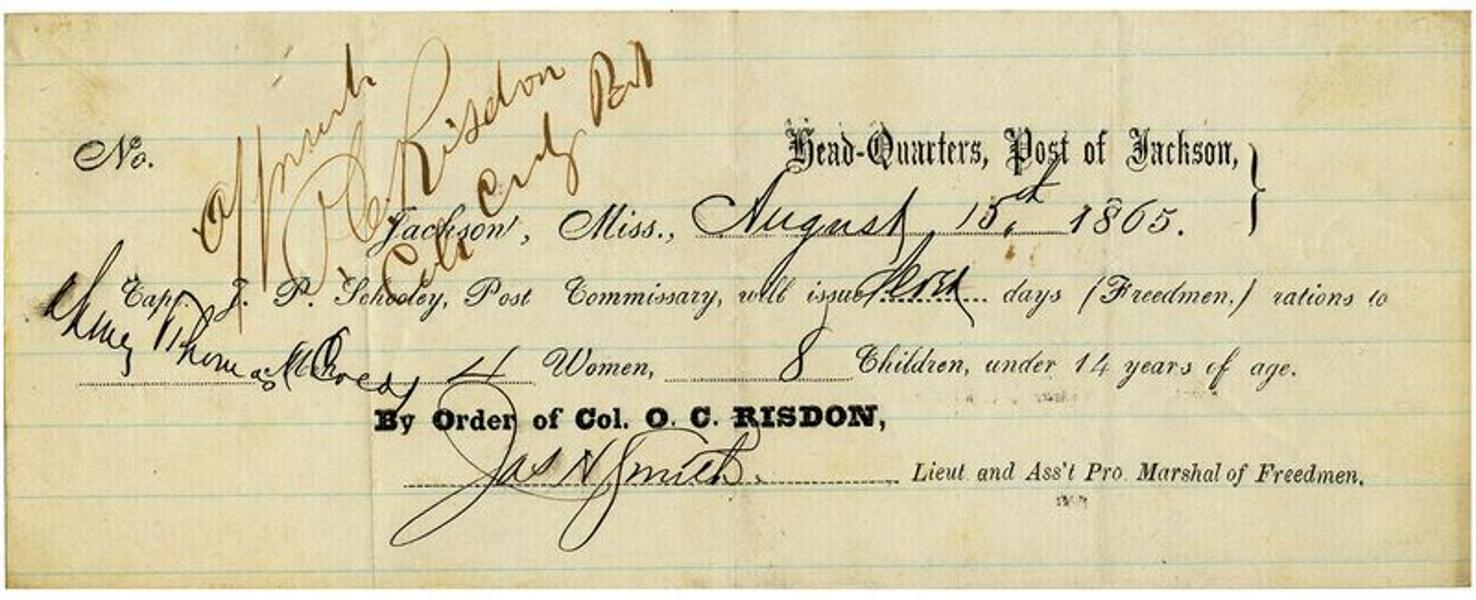 O C Risdon
Col Comdg Post
No.
Head-Quarters, Post of Jackson,
Jackson, Miss., August 15th 1865.
Capt. J. P. Schooley, Post Commissary, will issue days (Freedmen.) rations to
Thomas 4 Women, 8 Children, under 14 years of age.
By Order of Col. O. C. RISDON,
Jas N Smith. Lieut and Ass't Pro. Marshal of Freedmen.